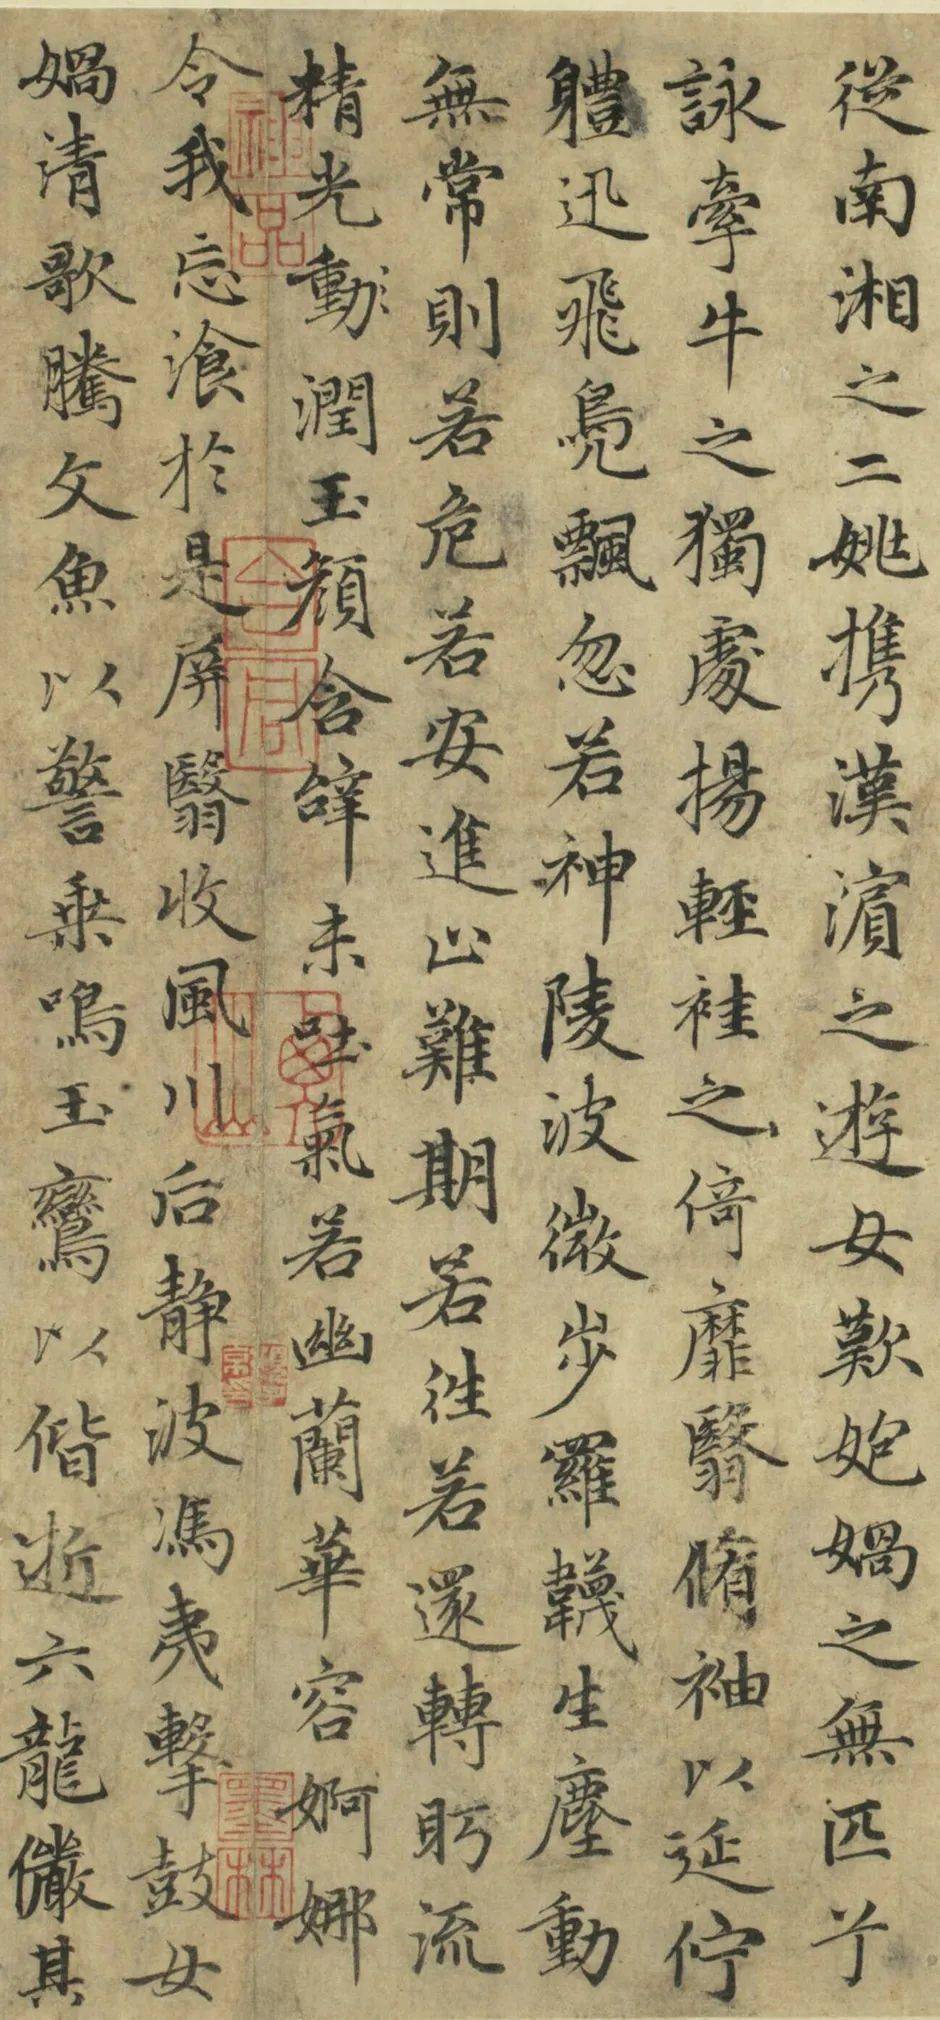 從南湘之二姚携漢濵之遊女歎妑媧之無匹兮
詠牽牛之獨處揚輕袿之倚靡翳脩袖以延佇
軆迅飛鳧飄忽若神陵波微步羅韈生塵動
無常則若危若安進止難期若往若還轉眄流
精光動潤玉顏含辝未吐氣若幽蘭華容婀娜
令我忘飡於是屏翳收風川后靜波馮夷擊鼓女
媧清歌騰文魚以警乗鳴玉鸞以偕逝六龍儼其
神品
墨林